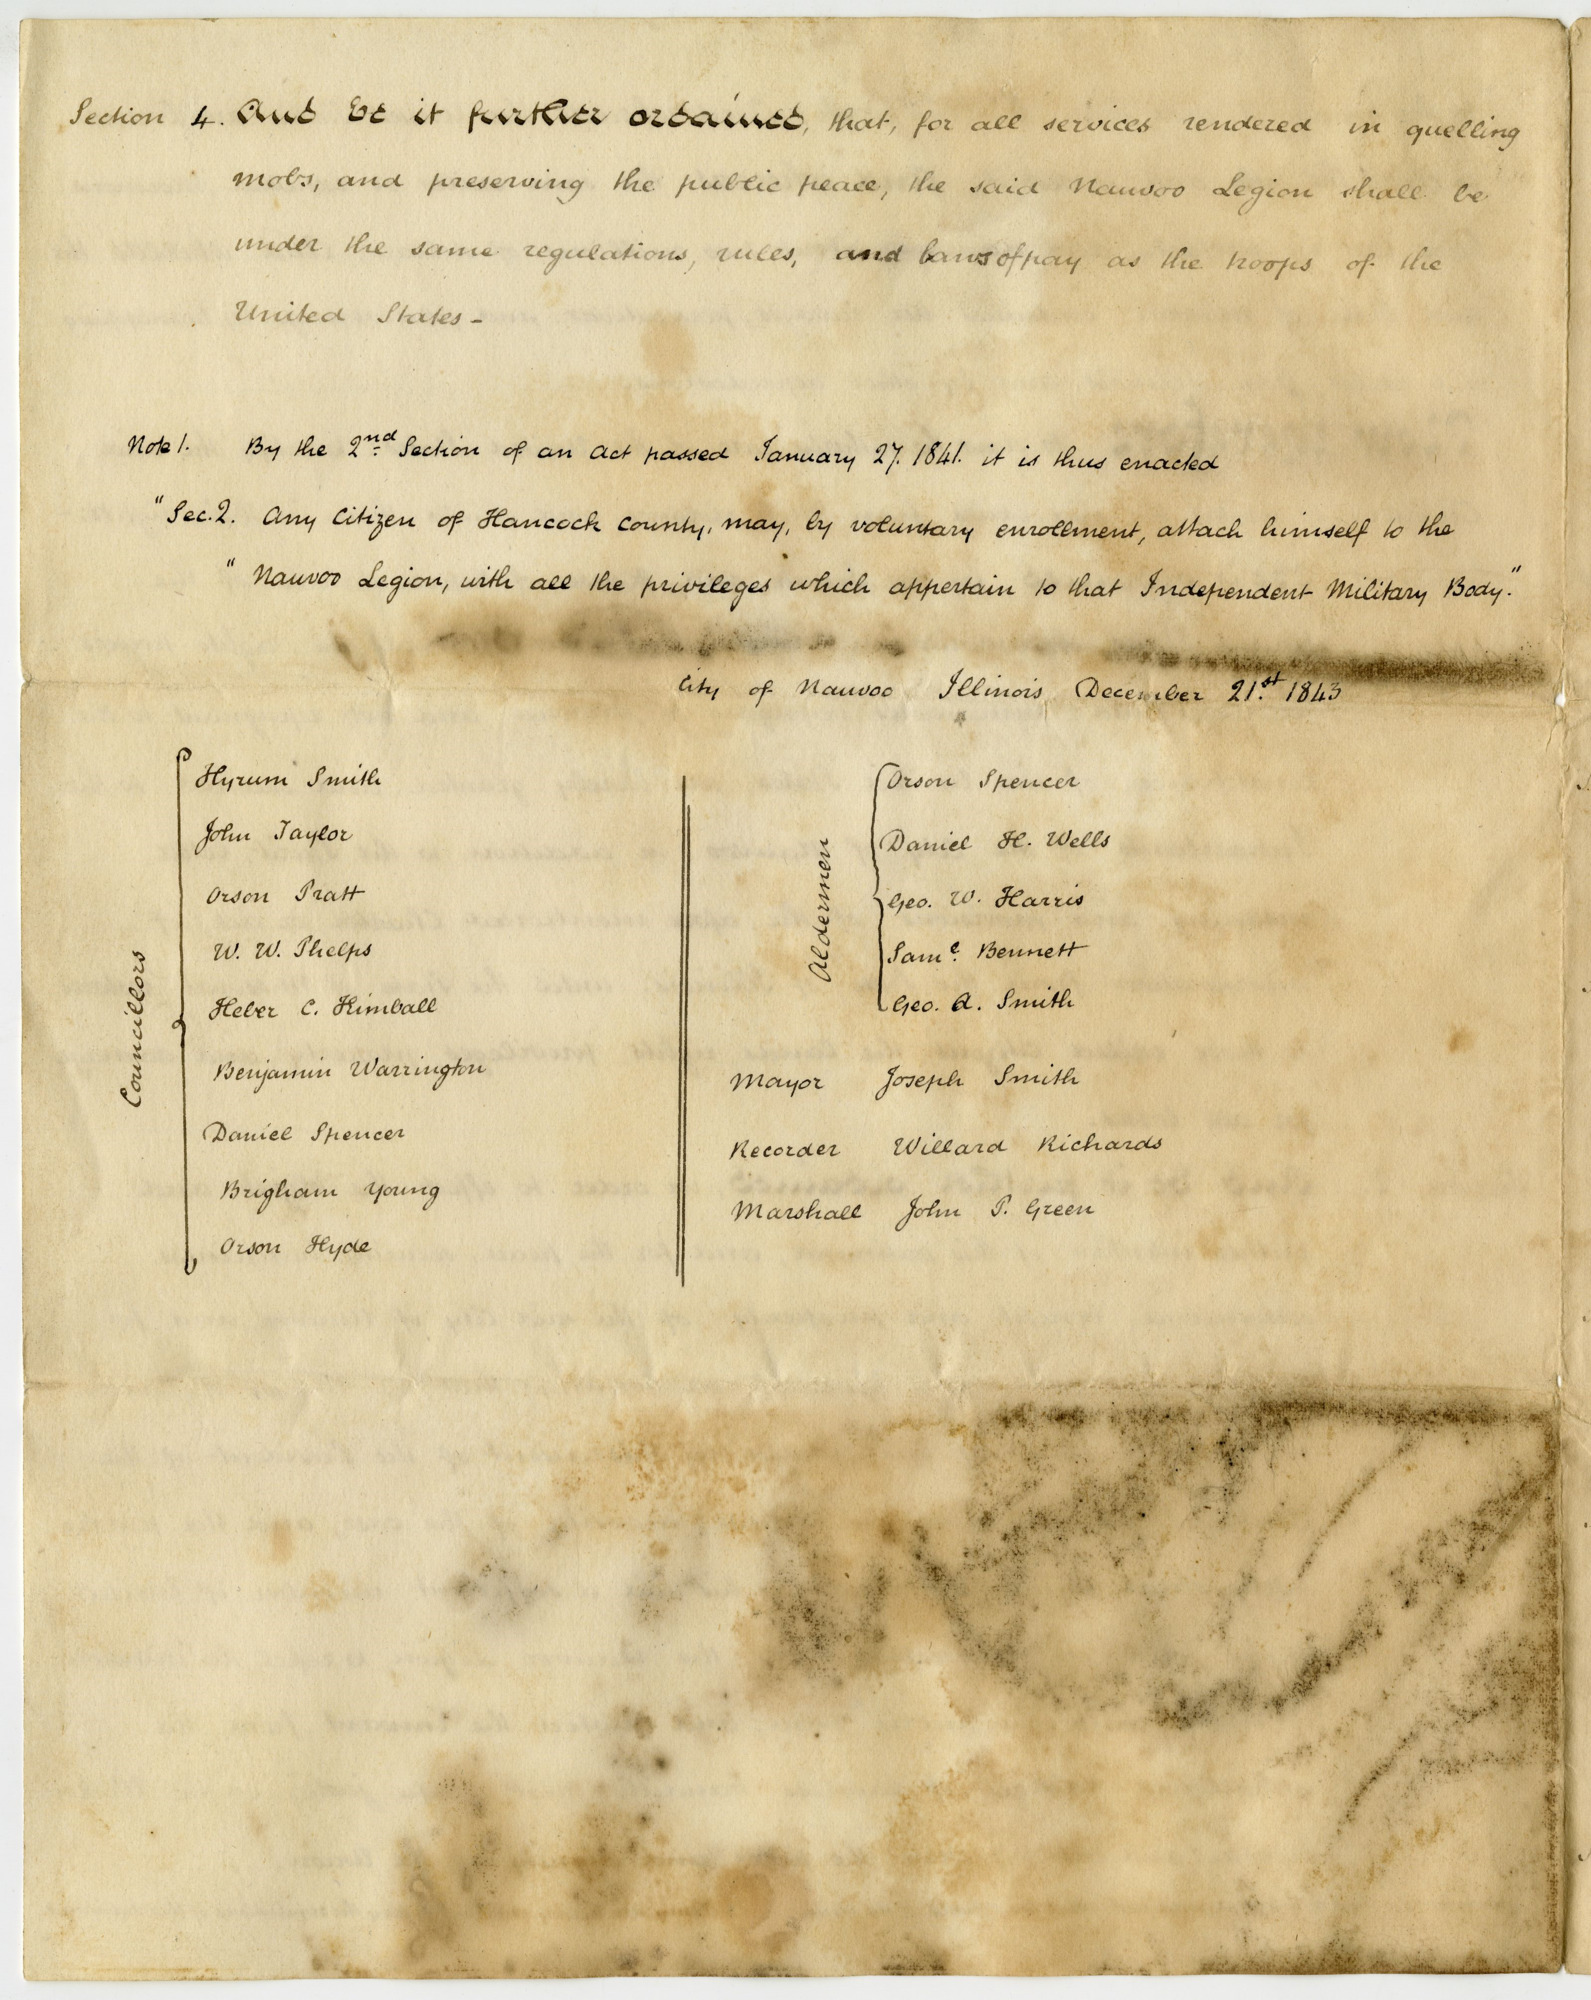 Section 4. And be it further ordained, that, for all services rendered in quelling
mobs, and preserving the public peace, the said Nauvoo Legion shall be
under the same regulations, rules, and laws of pay as the troops of the
United States -
Note 1. By the 2nd. Section of an Act passed January 27. 1841. it is thus enacted
"Sec. 2. Any Citizen of Hancock County, may, by voluntary enrollment, attach himself to the
" Nauvoo Legion, with all the privileges which appertain to that Independent Military Body."
City of Nauvoo Illinois December 21.st 1843
Councillors
Hyrum Smith
John Taylor
Orson Pratt
W. W. Phelps
Heber C. Kimball
Benjamin Warrington
Daniel Spencer
Brigham Young
Orson Hyde
Aldermen
Orson Spencer
Daniel H. Wells
Geo. W. Harris
Saml. Bennett
Geo. A. Smith
Mayor Joseph Smith
Recorder Willard Richards
Marshall John P. Green